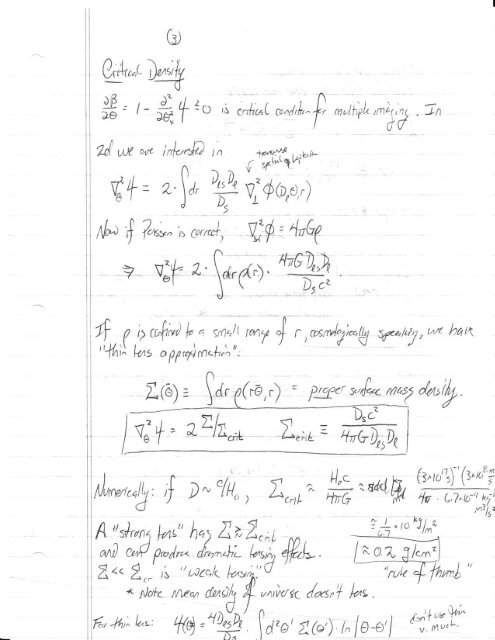 (3)
Critical Density
∂β/∂θ = 1 - ∂²/∂θ² ψ ≟ 0 is critical condition for multiple imaging. In
2d we are interested in
transverse spatial Laplacian
∇²_θ ψ = 2·∫dr D_ls D_l / D_s ∇²_⊥ φ(D_l θ, r)
Now if Poisson is correct, ∇² φ = 4πGρ
⇒ ∇²_θ ψ = 2·∫dr ρ(r)· 4πG D_ls D_l / D_s c².
If ρ is confined to a small range of r, cosmologically speaking, we have
"thin lens approximation":
Σ(θ̄) ≡ ∫dr ρ(rθ̄, r) = proper surface mass density.
∇²_θ ψ = 2 Σ/Σ_crit Σ_crit ≡ D_s c² / 4πG D_ls D_l
Numerically: if D ~ c/H₀, Σ_crit ≈ H₀c / 4πG ≈ (3×10¹⁷ s)⁻¹ (3×10⁸ m/s) / 4π · 6.7×10⁻¹¹ kg⁻¹ m³/s²
≈ 1/6.7 ×10 kg/m²
A "strong lens" has Σ ≳ Σ_crit
and can produce dramatic lensing effects.
≈ 0.2 g/cm²
Σ << Σ_cr is "weak lensing"
"rule of thumb"
* Note mean density of universe doesn't lens.
For thin lens: ψ(θ) = 4 D_ls D_l / D_s ∫d²θ' Σ(θ')· ln|θ-θ'|
don't use this v. much.